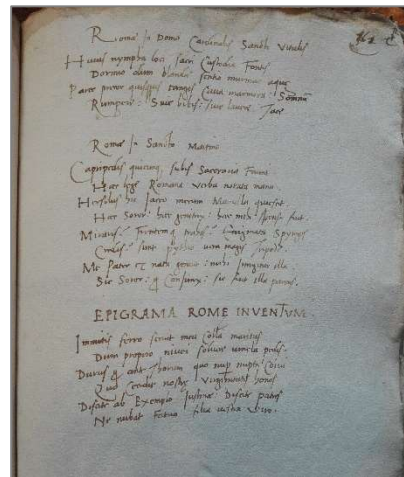 Romæ In Domo Cardinalis Sancti Vitalis
Huius nympha loci, sacri Custodia Fontis
Dormio dum blandæ sentio murmur aquæ
Parce precor quisquis tangis Cava marmora Somnum
Rumpere: Sive bibas: sive lavere: Tace
Romæ In Sancto
quicunq subis Sacraria
Hæc lege Romana verba notata manu
Hersilus hic jaceo mecum Marulla quiescet
Hæc Soror: hæc genitrix: hæc mihi sponsa fuit
Miraris: Frontemq trahis: Enigmata Spyngis
Credis: sunt pythio vera magis Tripode
Me Pater e nata genuit: mihi Iungitur illa
Sic Soror: & Coniunx: sic fuit illa parens.
EPIGRAMA ROME INVENTVM
Immitis ferro secuit mea Colla maritus
Dum propero nivei solvere vincla pedis
Durus & ante Thorum quo nup nupta Coivi
Quo Cecidit nostræ Virginitatis honos
Discite ab Exemplo Iustinæ Discite patres
Ne nubat Fatuo filia vestra viro.